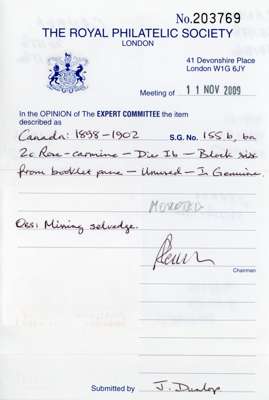 No.203769
THE ROYAL PHILATELIC SOCIETY
LONDON
41 Devonshire Place
London W1G 6JY
Meeting of 11 NOV 2009
In the OPINION of The EXPERT COMMITTEE the item
described as
Canada: 1898-1902 S.G. No. 155b, ba
2c Rose-carmine - Die Ib - Block six
from booklet pane - Unused - Is Genuine.
Obs: Missing selvedge.
Chairman
Submitted by J. Dunlop